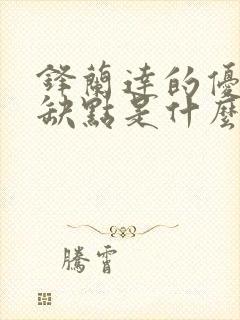 鋒蘭達的優
缺點是什麼
騰霄